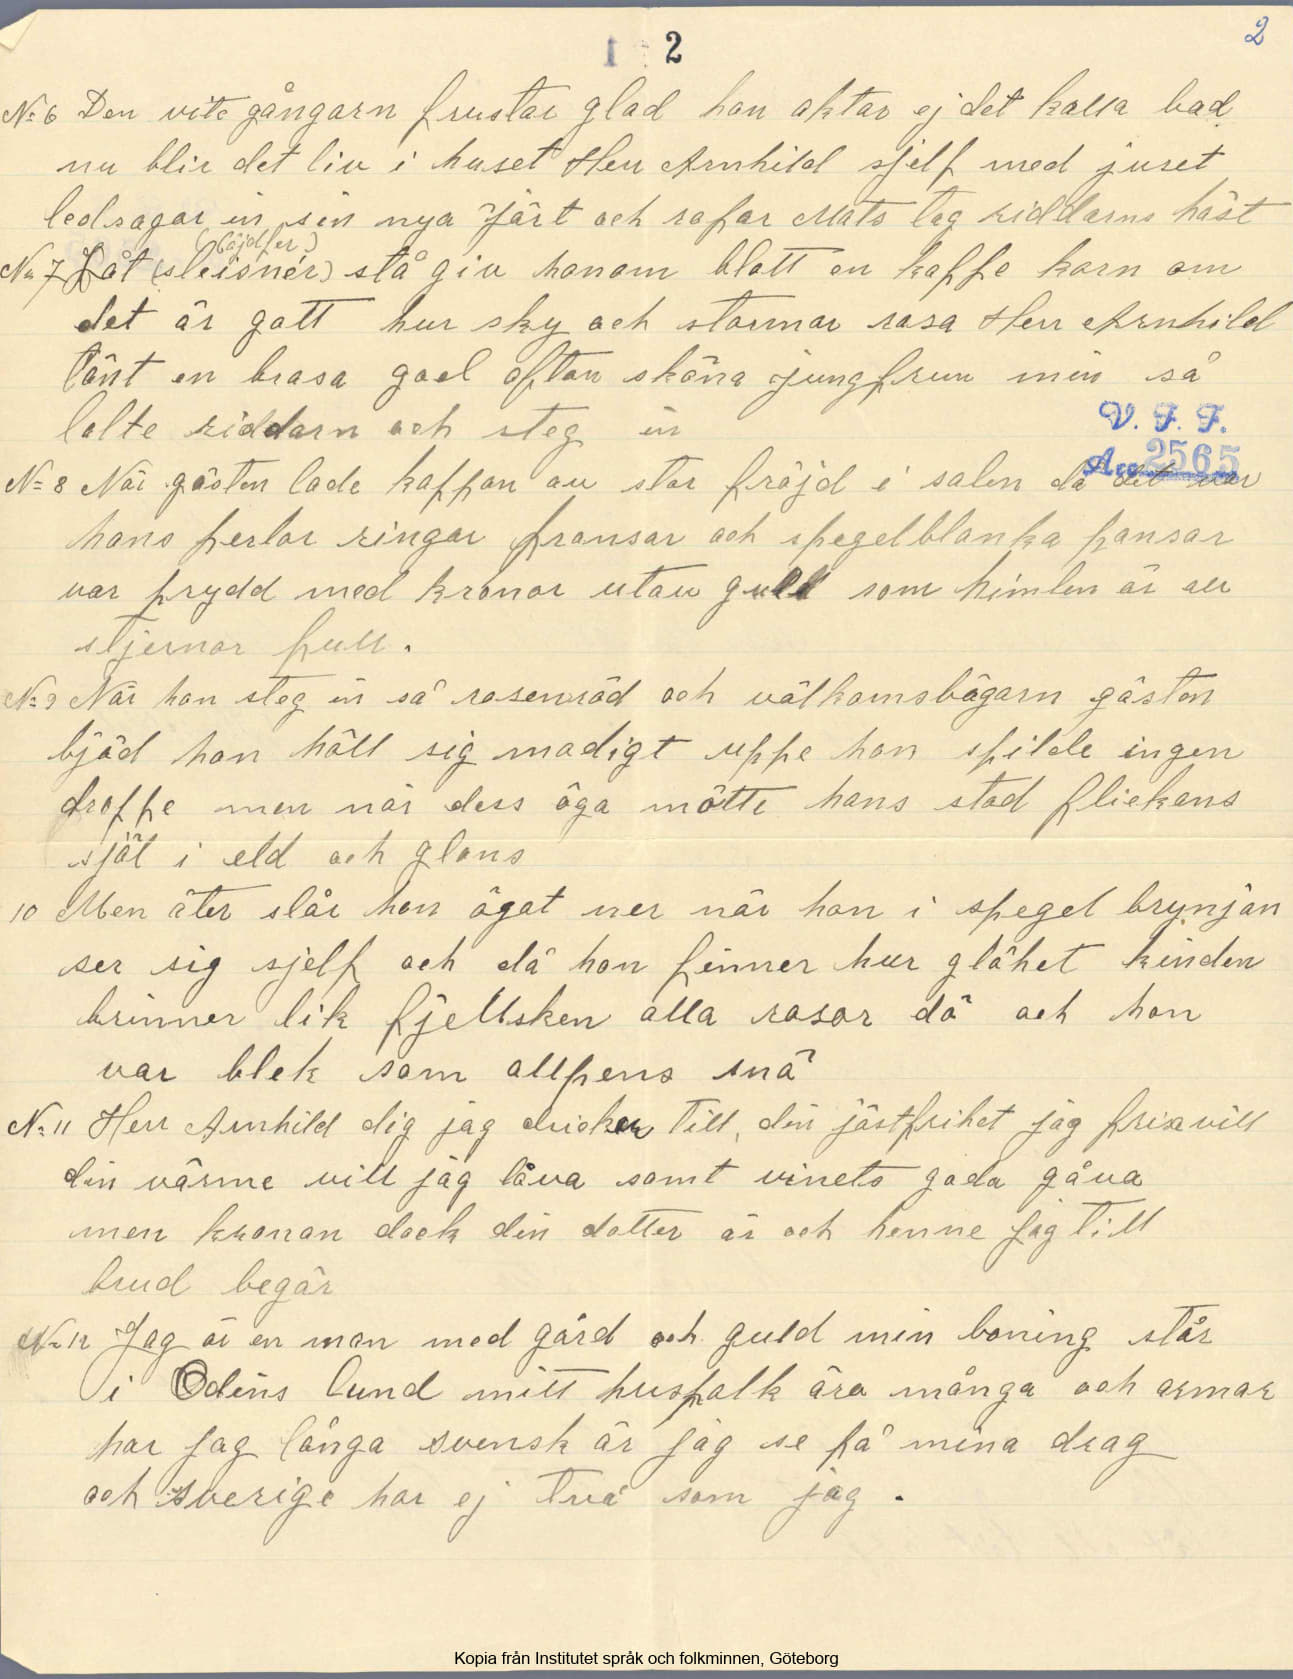 1 2
2
No 6 Den vite gångarn frustar glad han aktar ej det kalla bad
nu blir det liv i huset Herr Arnhild sjelf med juset
ledsagar in sin nya järt och ropar Mats tag riddarns häst
(bäjdler)
No 7 Låt (sleisnér) stå giv honom blott en kaffe korn om
det är gott hur sky och stormar rasa Herr Arnhild
tänt en brasa god afton sköna jungfrun min så
lolte riddarn och steg in
V. F. F.
Acc 2565
No 8 När gästen lade kappan av stor fröjd i salen då det var
hans perlor ringar fransar och spegelblanka pansar
var prydd med kronor utav guld som himlen är av
stjernor full.
No 9 När hon steg in så rosenröd och välkomsbägarn gästen
bjöd hon höll sig modigt uppe hon spilde ingen
droppe men när dess öga mötte hans stod flickans
själ i eld och glans
10 Men åter slår hon ögat ner när hon i spegel brynjan
ser sig sjelf och då hon finner hur glöhet kinden
brinner lik fjellsken alla rosor dö och hon
var blek som allpens snö
No 11 Herr Arnhild dig jag dricker till, din jästfrihet jag prisa vill
din värme vill jag låva samt vinets goda gåva
men kronan dock din dotter är och henne jag till
brud begär
No 12 Jag är en man med gård och guld min boning står
i Odins lund mitt husfolk äro många och armar
har jag långa svensk är jag se på mina drag
och sverige har ej två som jag.
Kopia från Institutet språk och folkminnen, Göteborg